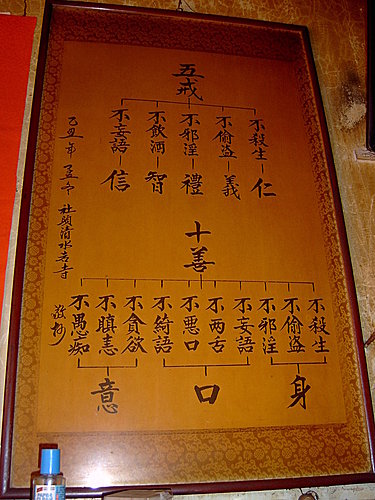 五戒
不殺生－仁
不偷盜－義
不邪淫－禮
不飲酒－智
不妄語－信
十善
不殺生
不偷盜
不邪淫
不妄語
不两舌
不悪口
不綺語
不貪欲
不瞋恚
不愚痴
身
口
意
乙丑年
社頭清水岩寺
敬抄